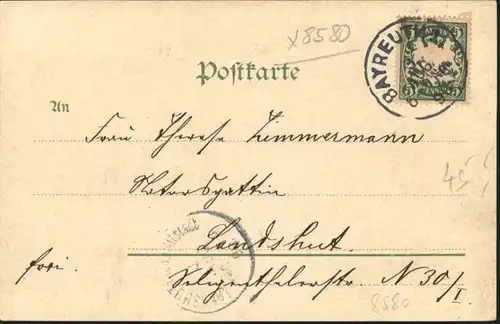 x8580
BAYREUTH
5 5
Postkarte
An
Frau Therese Zimmermann
45,
Notarsgattin
Landshut.
frei.
Seligenthalerstr. N 30/I.
8580